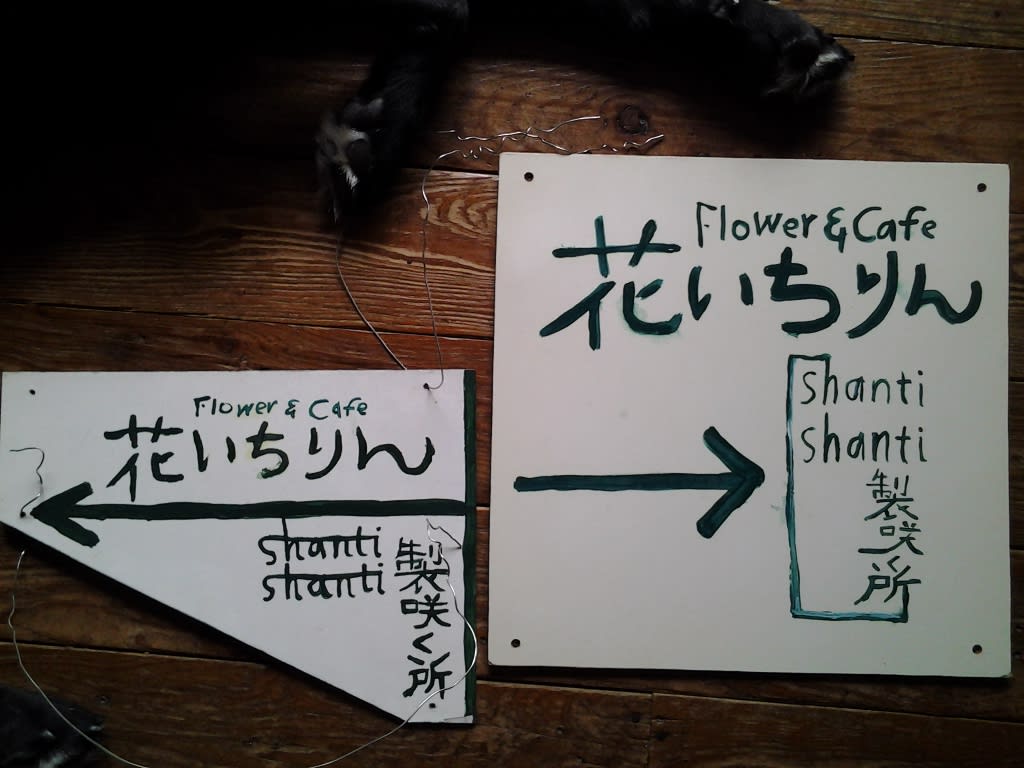 Flower & Cafe
花いちりん
shanti
shanti
製咲く所
Flower & Cafe
花いちりん
shanti
shanti
製咲く所